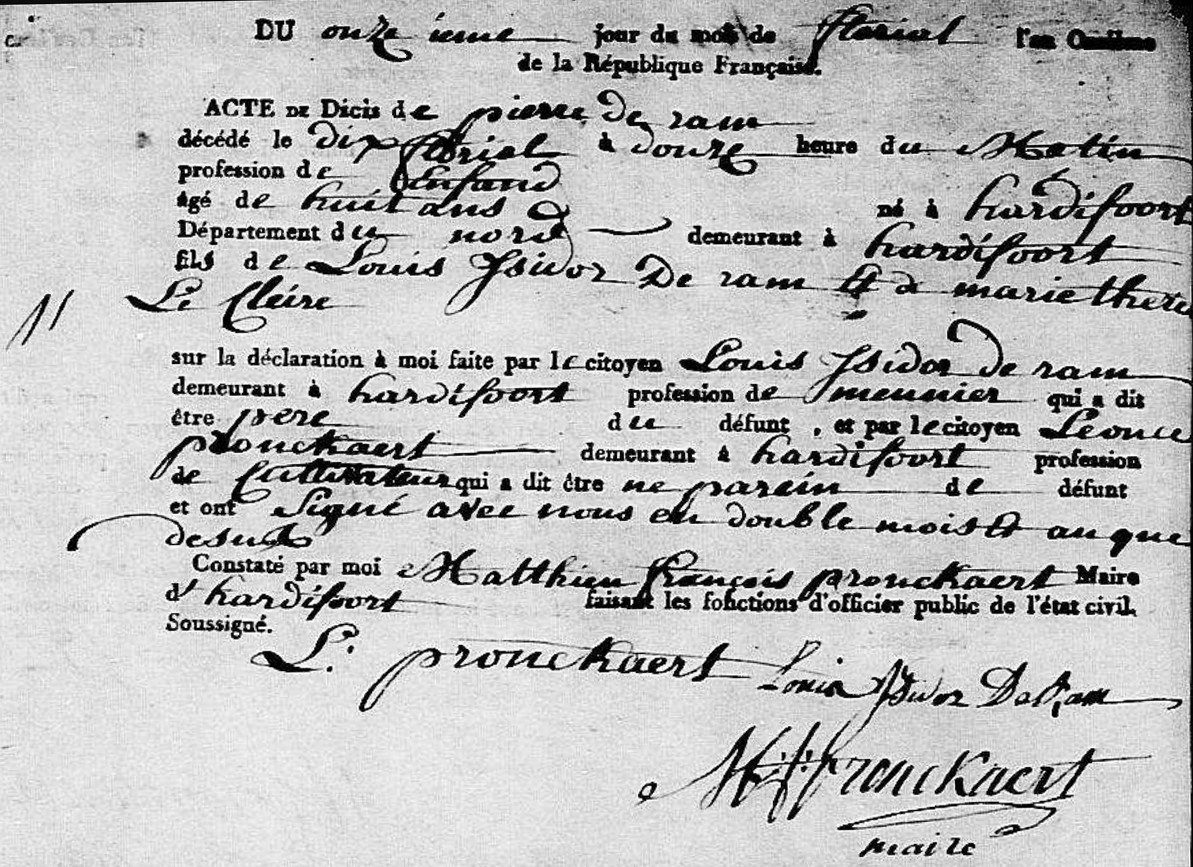 DU onze ieme jour du mois de floriel l'an Onzième
de la République Française.
ACTE DE Décis de pierre De ram
décédé le dix floriel à douze heure du Matin
profession de Enfand
âgé de huit ans né à hardifoort
Département du nord demeurant à hardifoort
fils de Louis Isidor De ram Et de marie there
Le Cleire
11
sur la déclaration à moi faite par le citoyen Louis Isidor De ram
demeurant à hardifoort profession de meunier qui a dit
être pere du défunt, et par le citoyen Léonce
pronckaert demeurant à hardifoort profession
de Cultivateur qui a dit être ne parein de défunt
et ont Signé avec nous en double mois Et an que
desus
Constaté par moi Matthieu françois pronckaert Maire
d'hardifoort faisant les fonctions d'officier public de l'état civil.
Soussigné.
L. pronckaert Louis Isidor DeRam
M f pronckaert
maire